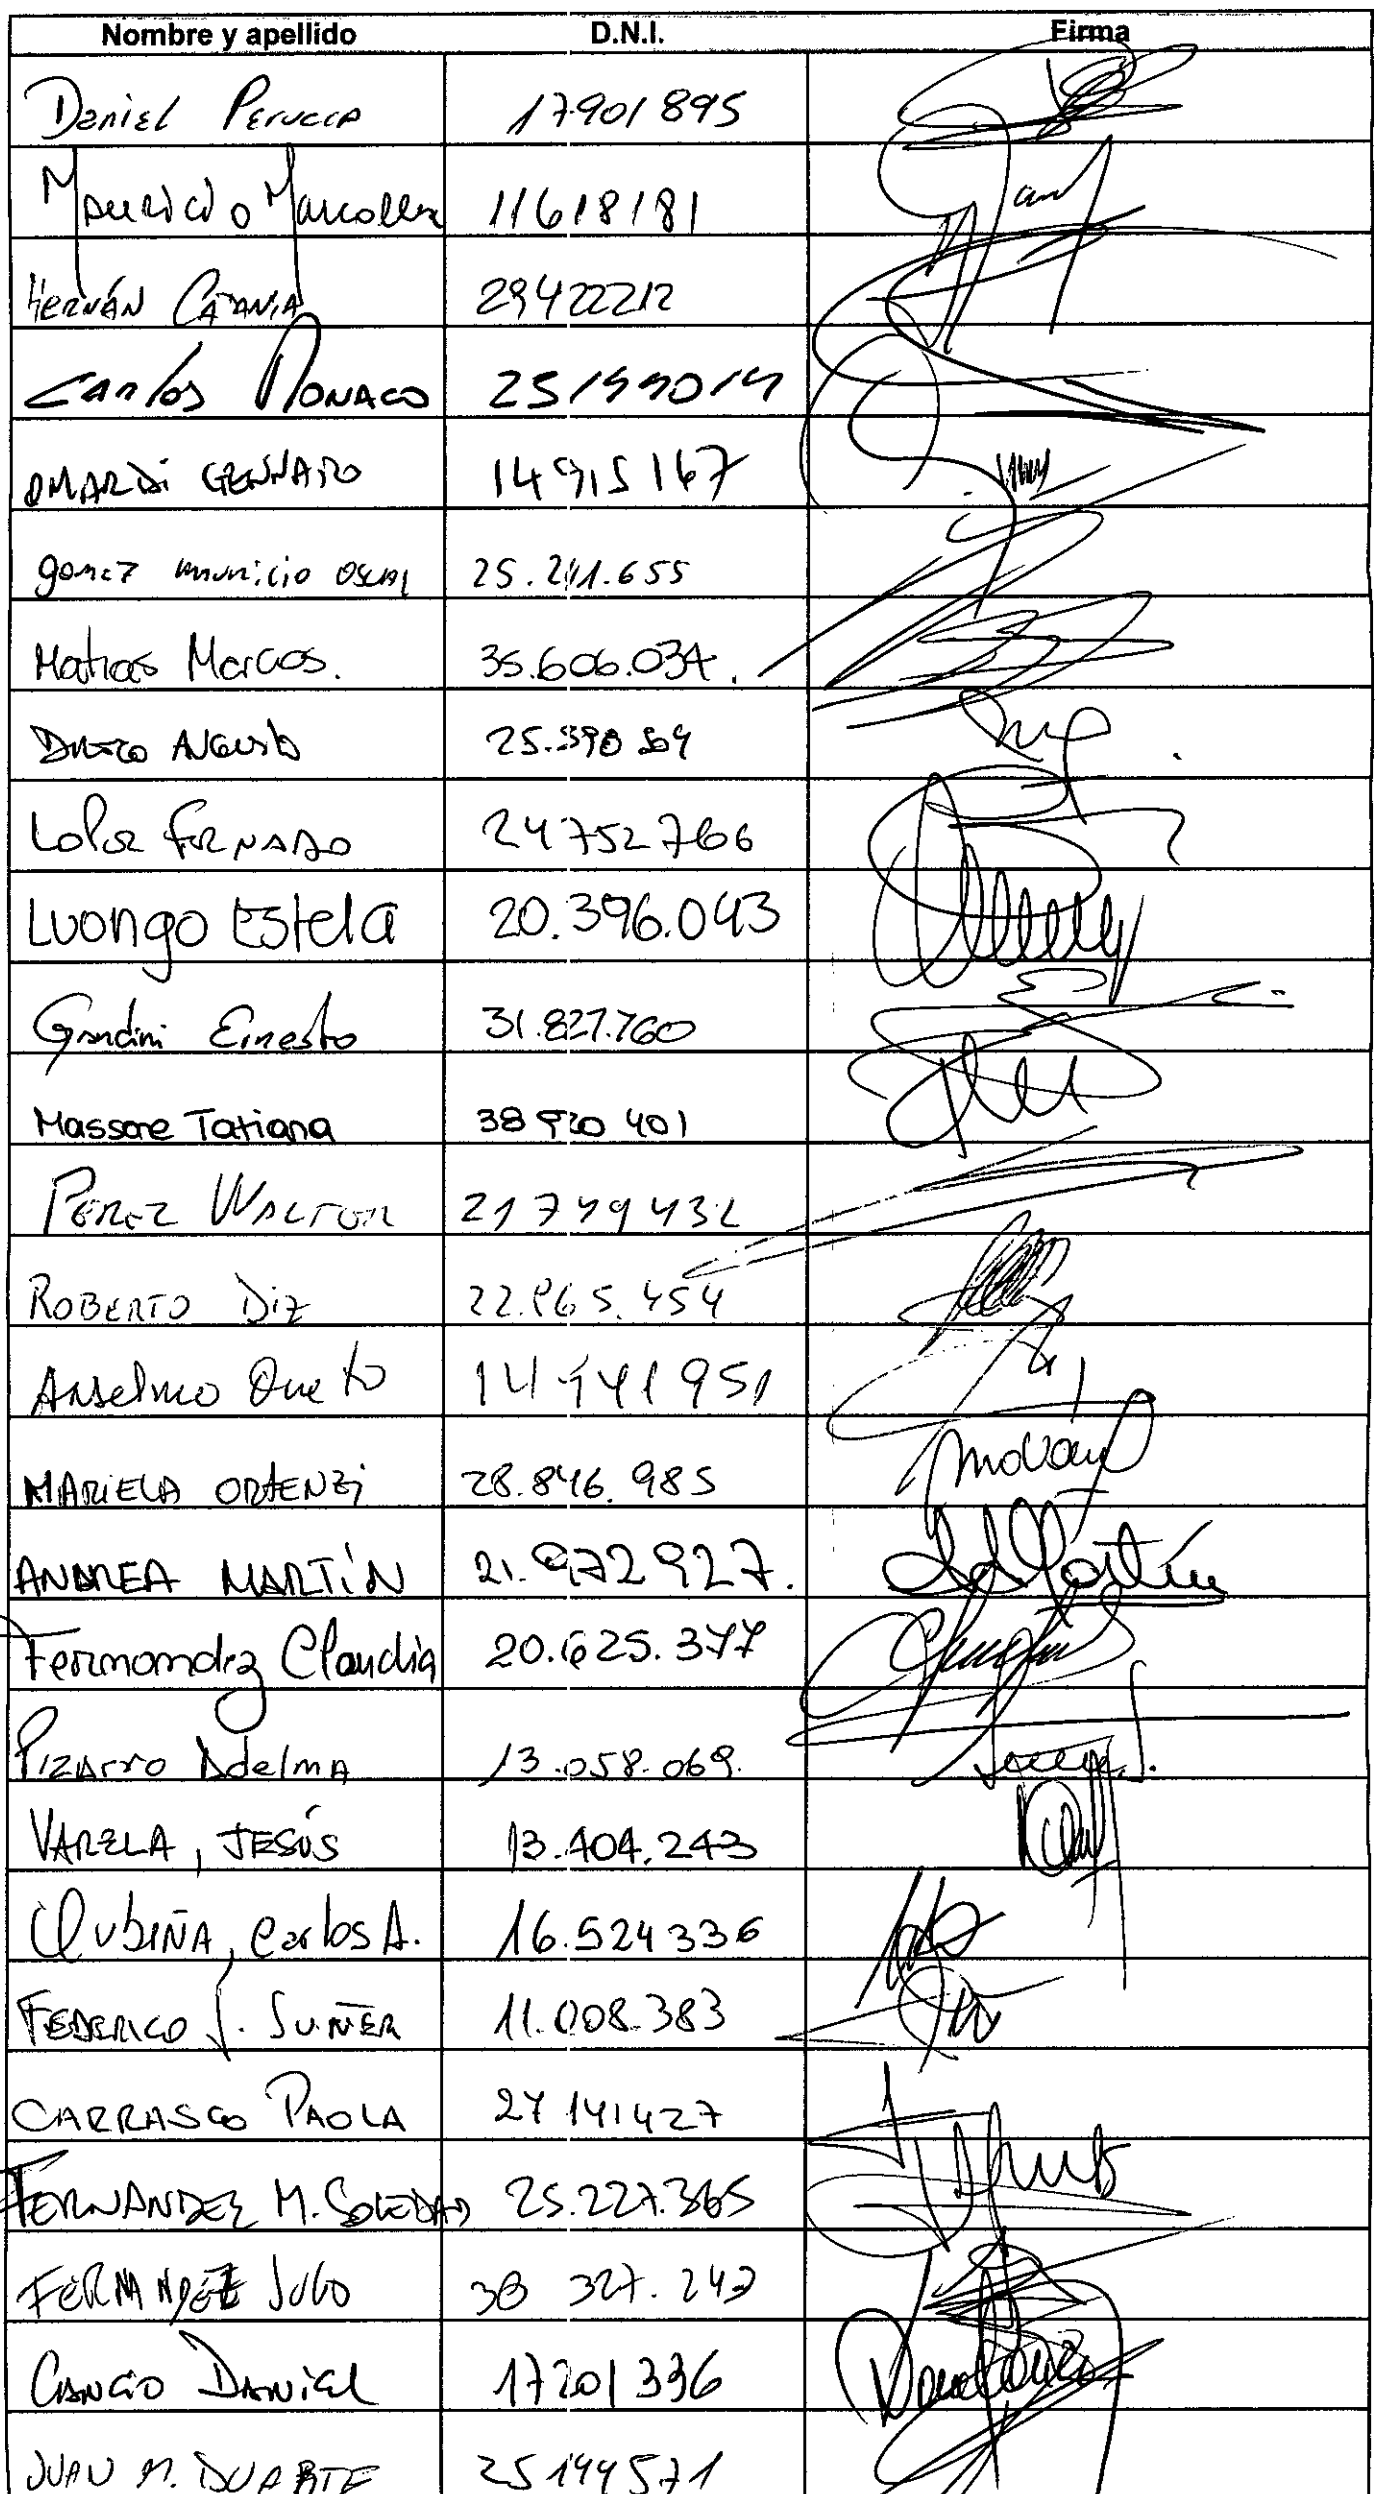 Nombre y apellido D.N.I. Firma
Daniel Perucca 17901895
Mauricio Marcolla 11618181
Hernán Catania 29422212
Carlos Monaco 25199019
OMAR Di GENNARO 14915167
gomez mauricio oscar 25.241.655
Matias Marcos. 35.606.034.
Augusto 25.390
Lopez 24752766
Luongo Estela 20.396.043
Ernesto 31.827.760
Massone Tatiana 38 920 401
PEREZ WALTER 21749432
ROBERTO Diz 22.865.454
Anselmo 14141951
MARIELA ORTENZI 28.846.985
ANDREA MARTíN 21.972927. Martín
Fernandez Claudia 20.625.377
Pizarro Adelma 13.058.069.
VARELA, JESÚS 13.404.243
CLUBIÑA, Carlos A. 16.524336
FEDERICO J. SUÑER 11.008.383
CARRASCO PAOLA 27141427
FERNANDEZ M. SOLEDAD 25.227.365
FERNANDEZ JULIO 38 327.243
CANCIO DANIEL 17201336
JUAN M. DUARTE 25144571